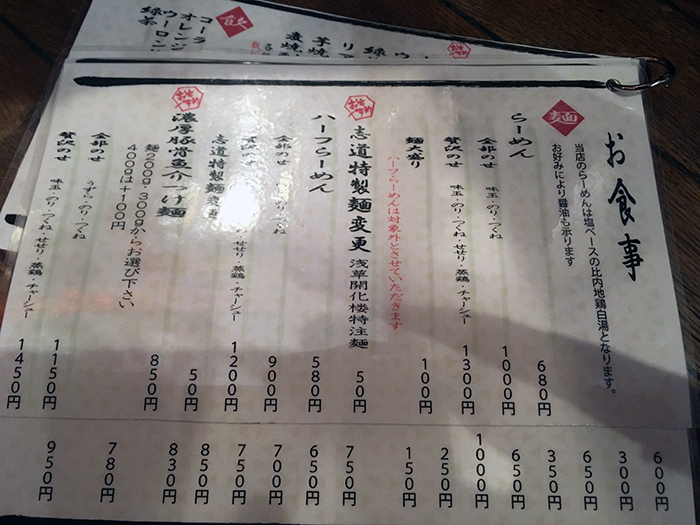 お食事
当店のらーめんは塩ベースの比内地鶏白湯となります。
お好みにより醤油も承ります
麺
らーめん 680円
全部のせ 味玉・のり・つくね 1000円
贅沢のせ 味玉・のり・つくね・せせり・蒸鶏・チャーシュー 1300円
麺大盛り 100円
ハーフらーめんは対象外とさせていただきます
志道特製麺変更 浅草開化楼特注麺 50円
ハーフらーめん 580円
全部のせ のり・つくね 900円
贅沢のせ せせり・蒸鶏・チャーシュー 1200円
志道特製麺変更 50円
濃厚豚骨魚介つけ麺 850円
麺200g・300gからお選び下さい
400gは+100円
全部のせ うずら・のり・つくね 1150円
贅沢のせ 味玉・のり・つくね・せせり・蒸鶏・チャーシュー 1450円
飲
コーラ
オレンジ
ウーロン
緑茶
600円
300円
650円
350円
650円
1000円
250円
150円
750円
650円
700円
750円
850円
830円
780円
950円